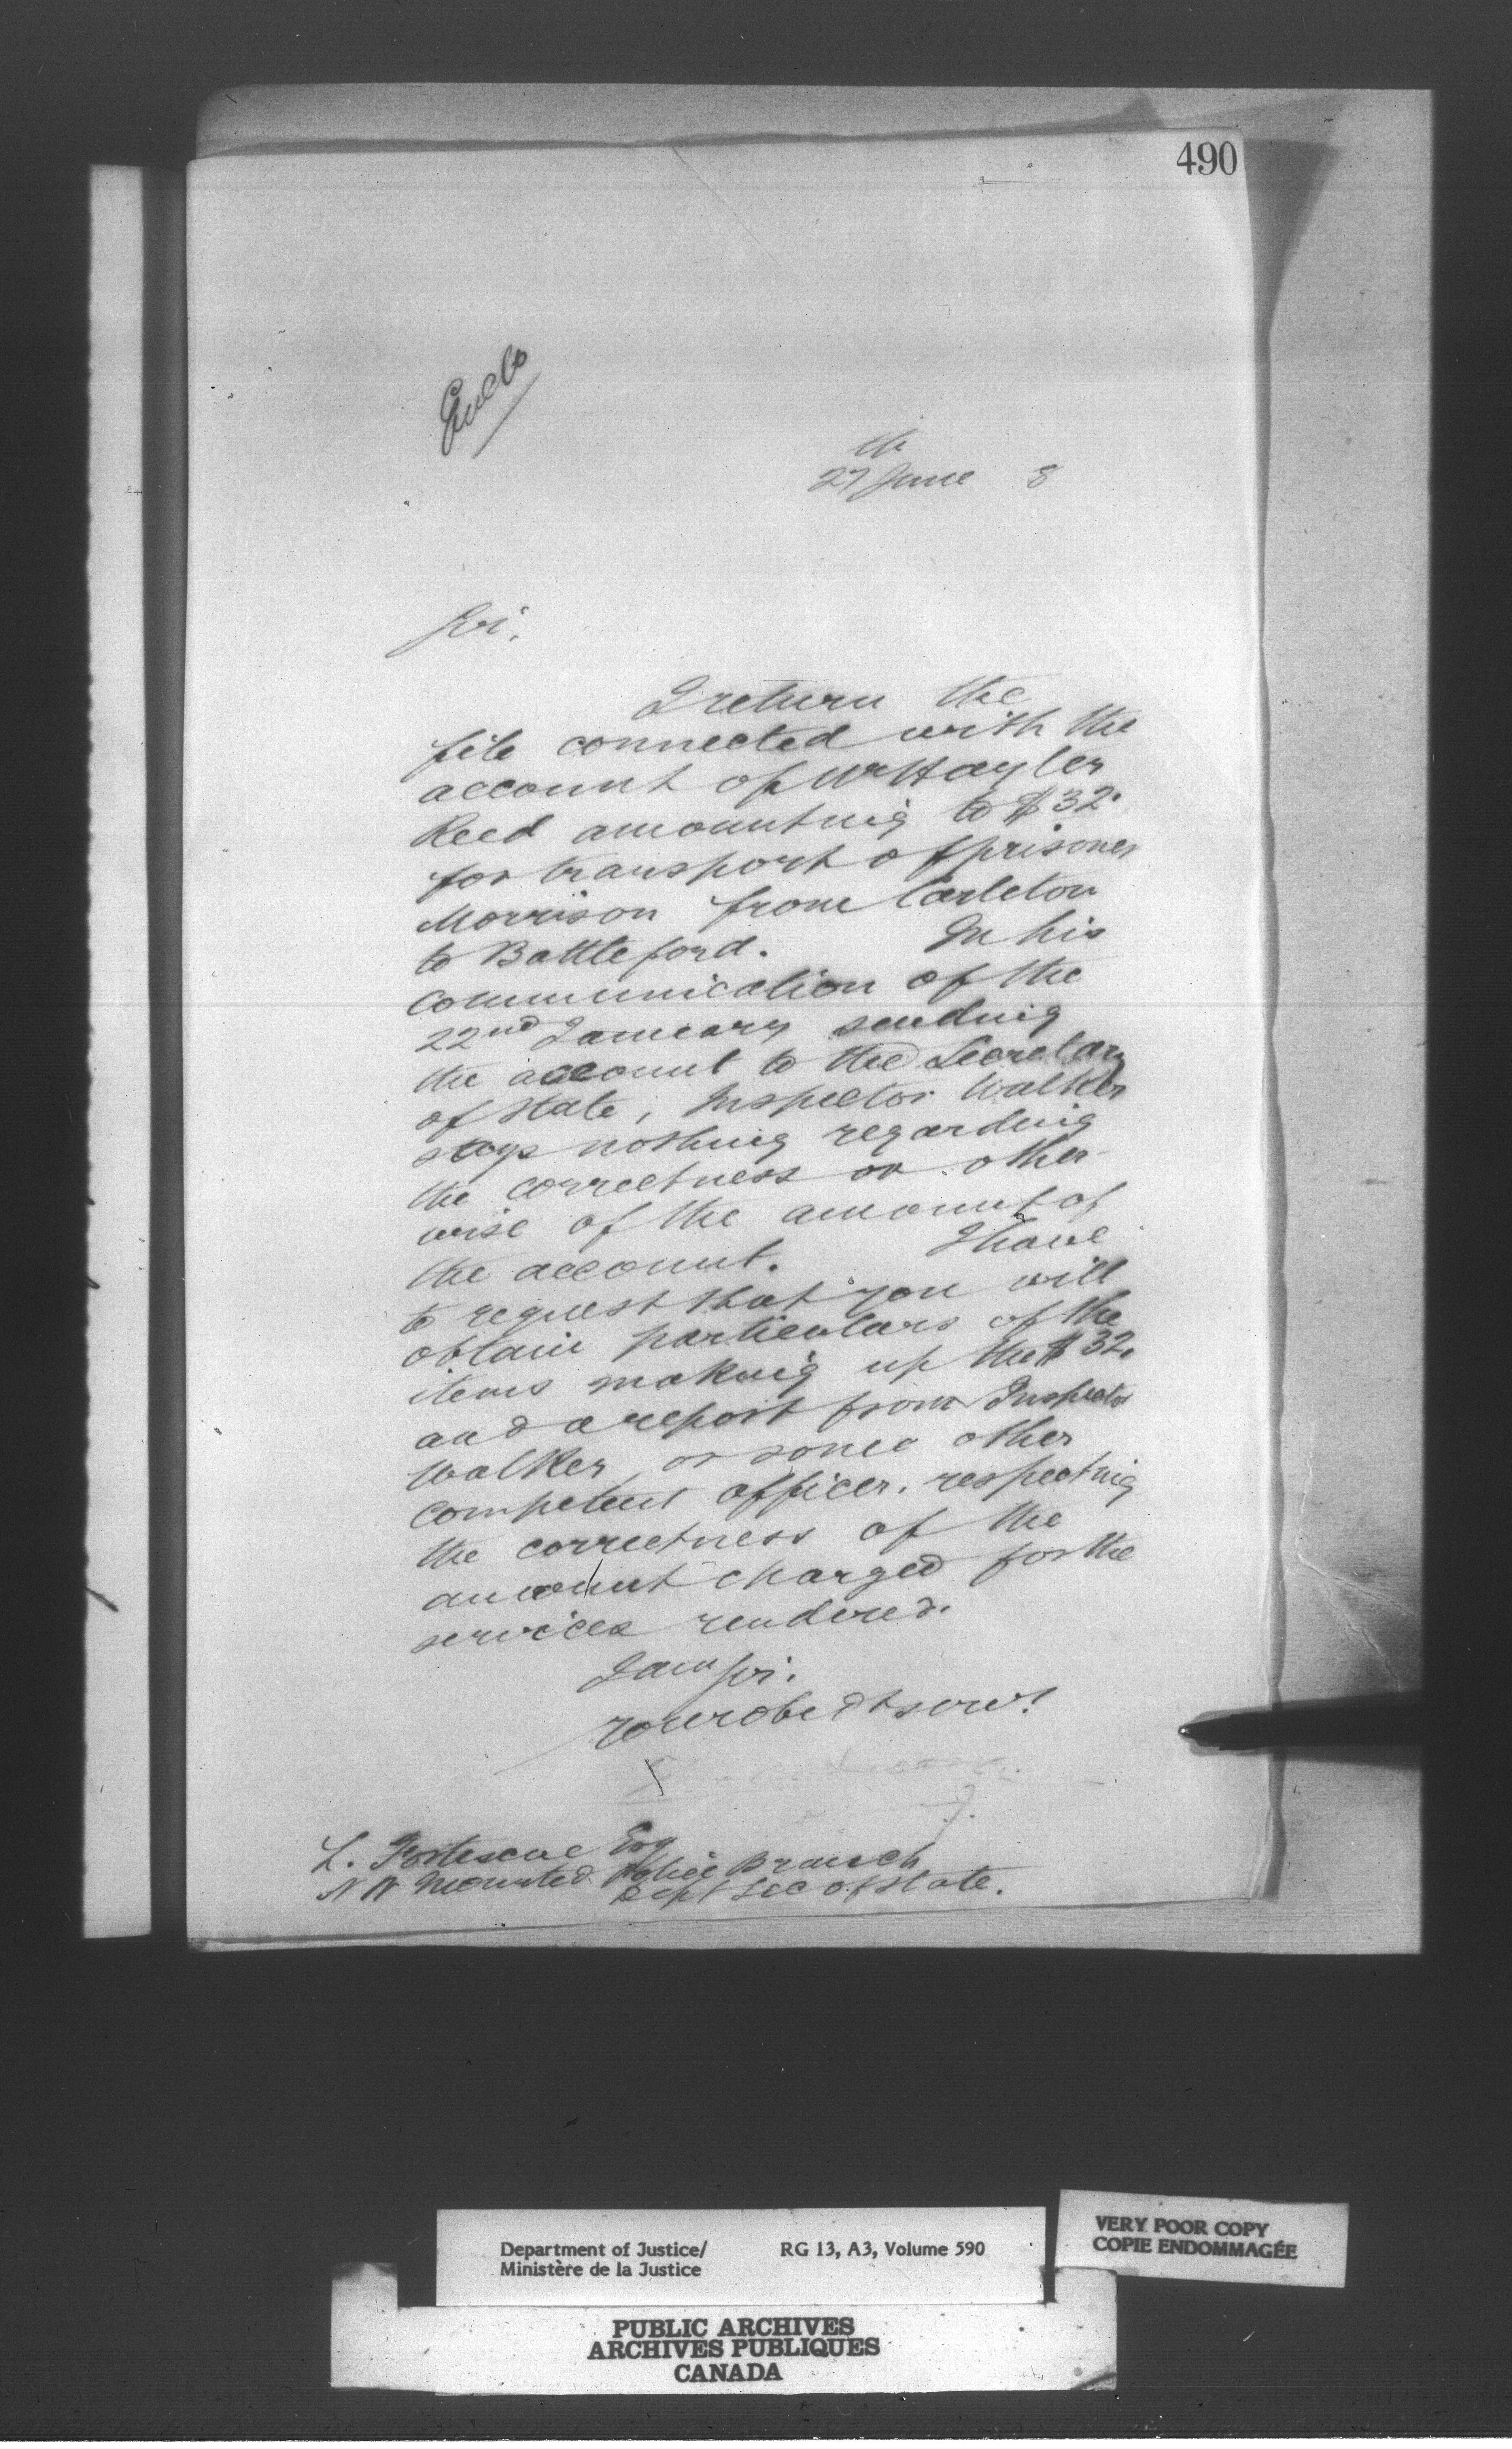 490
Enclo
27th June 8
Sir,
I return the
file connected with the
account of Wm Hayler
Reed amounting to $32.
for transport of prisoner
Morrison from Carleton
to Battleford. In his
communication of the
22nd January sending
the account to the Secretary
of State, Inspector Walker
says nothing regarding
the correctness or other-
wise of the amount of
the account. I have
to request that you will
obtain particulars of the
items making up the $32.
and a report from Inspector
Walker, or some other
competent officer, respecting
the correctness of the
amount charged for the
services rendered.
I am Sir.
Your obedt servt
L. Fortescue Esq
N W Mounted Police Branch
Dept Sec of State.
Department of Justice/ RG 13, A3, Volume 590
Ministère de la Justice
VERY POOR COPY
COPIE ENDOMMAGÉE
PUBLIC ARCHIVES
ARCHIVES PUBLIQUES
CANADA